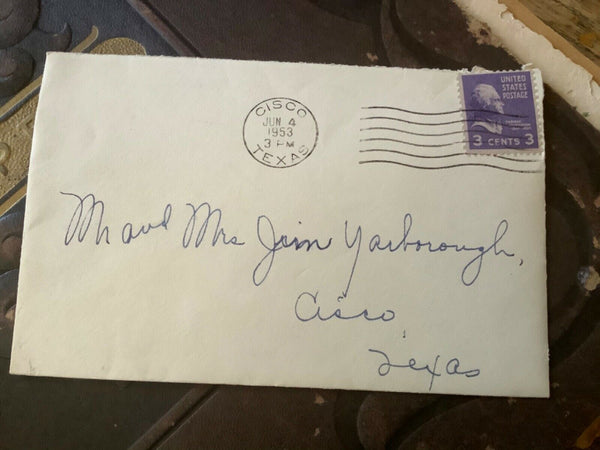 CISCO
JUN 4
1953
3 PM
TEXAS
UNITED
STATES
POSTAGE
3 CENTS 3
Mr and Mrs Jim Yarborough,
Cisco,
Texas